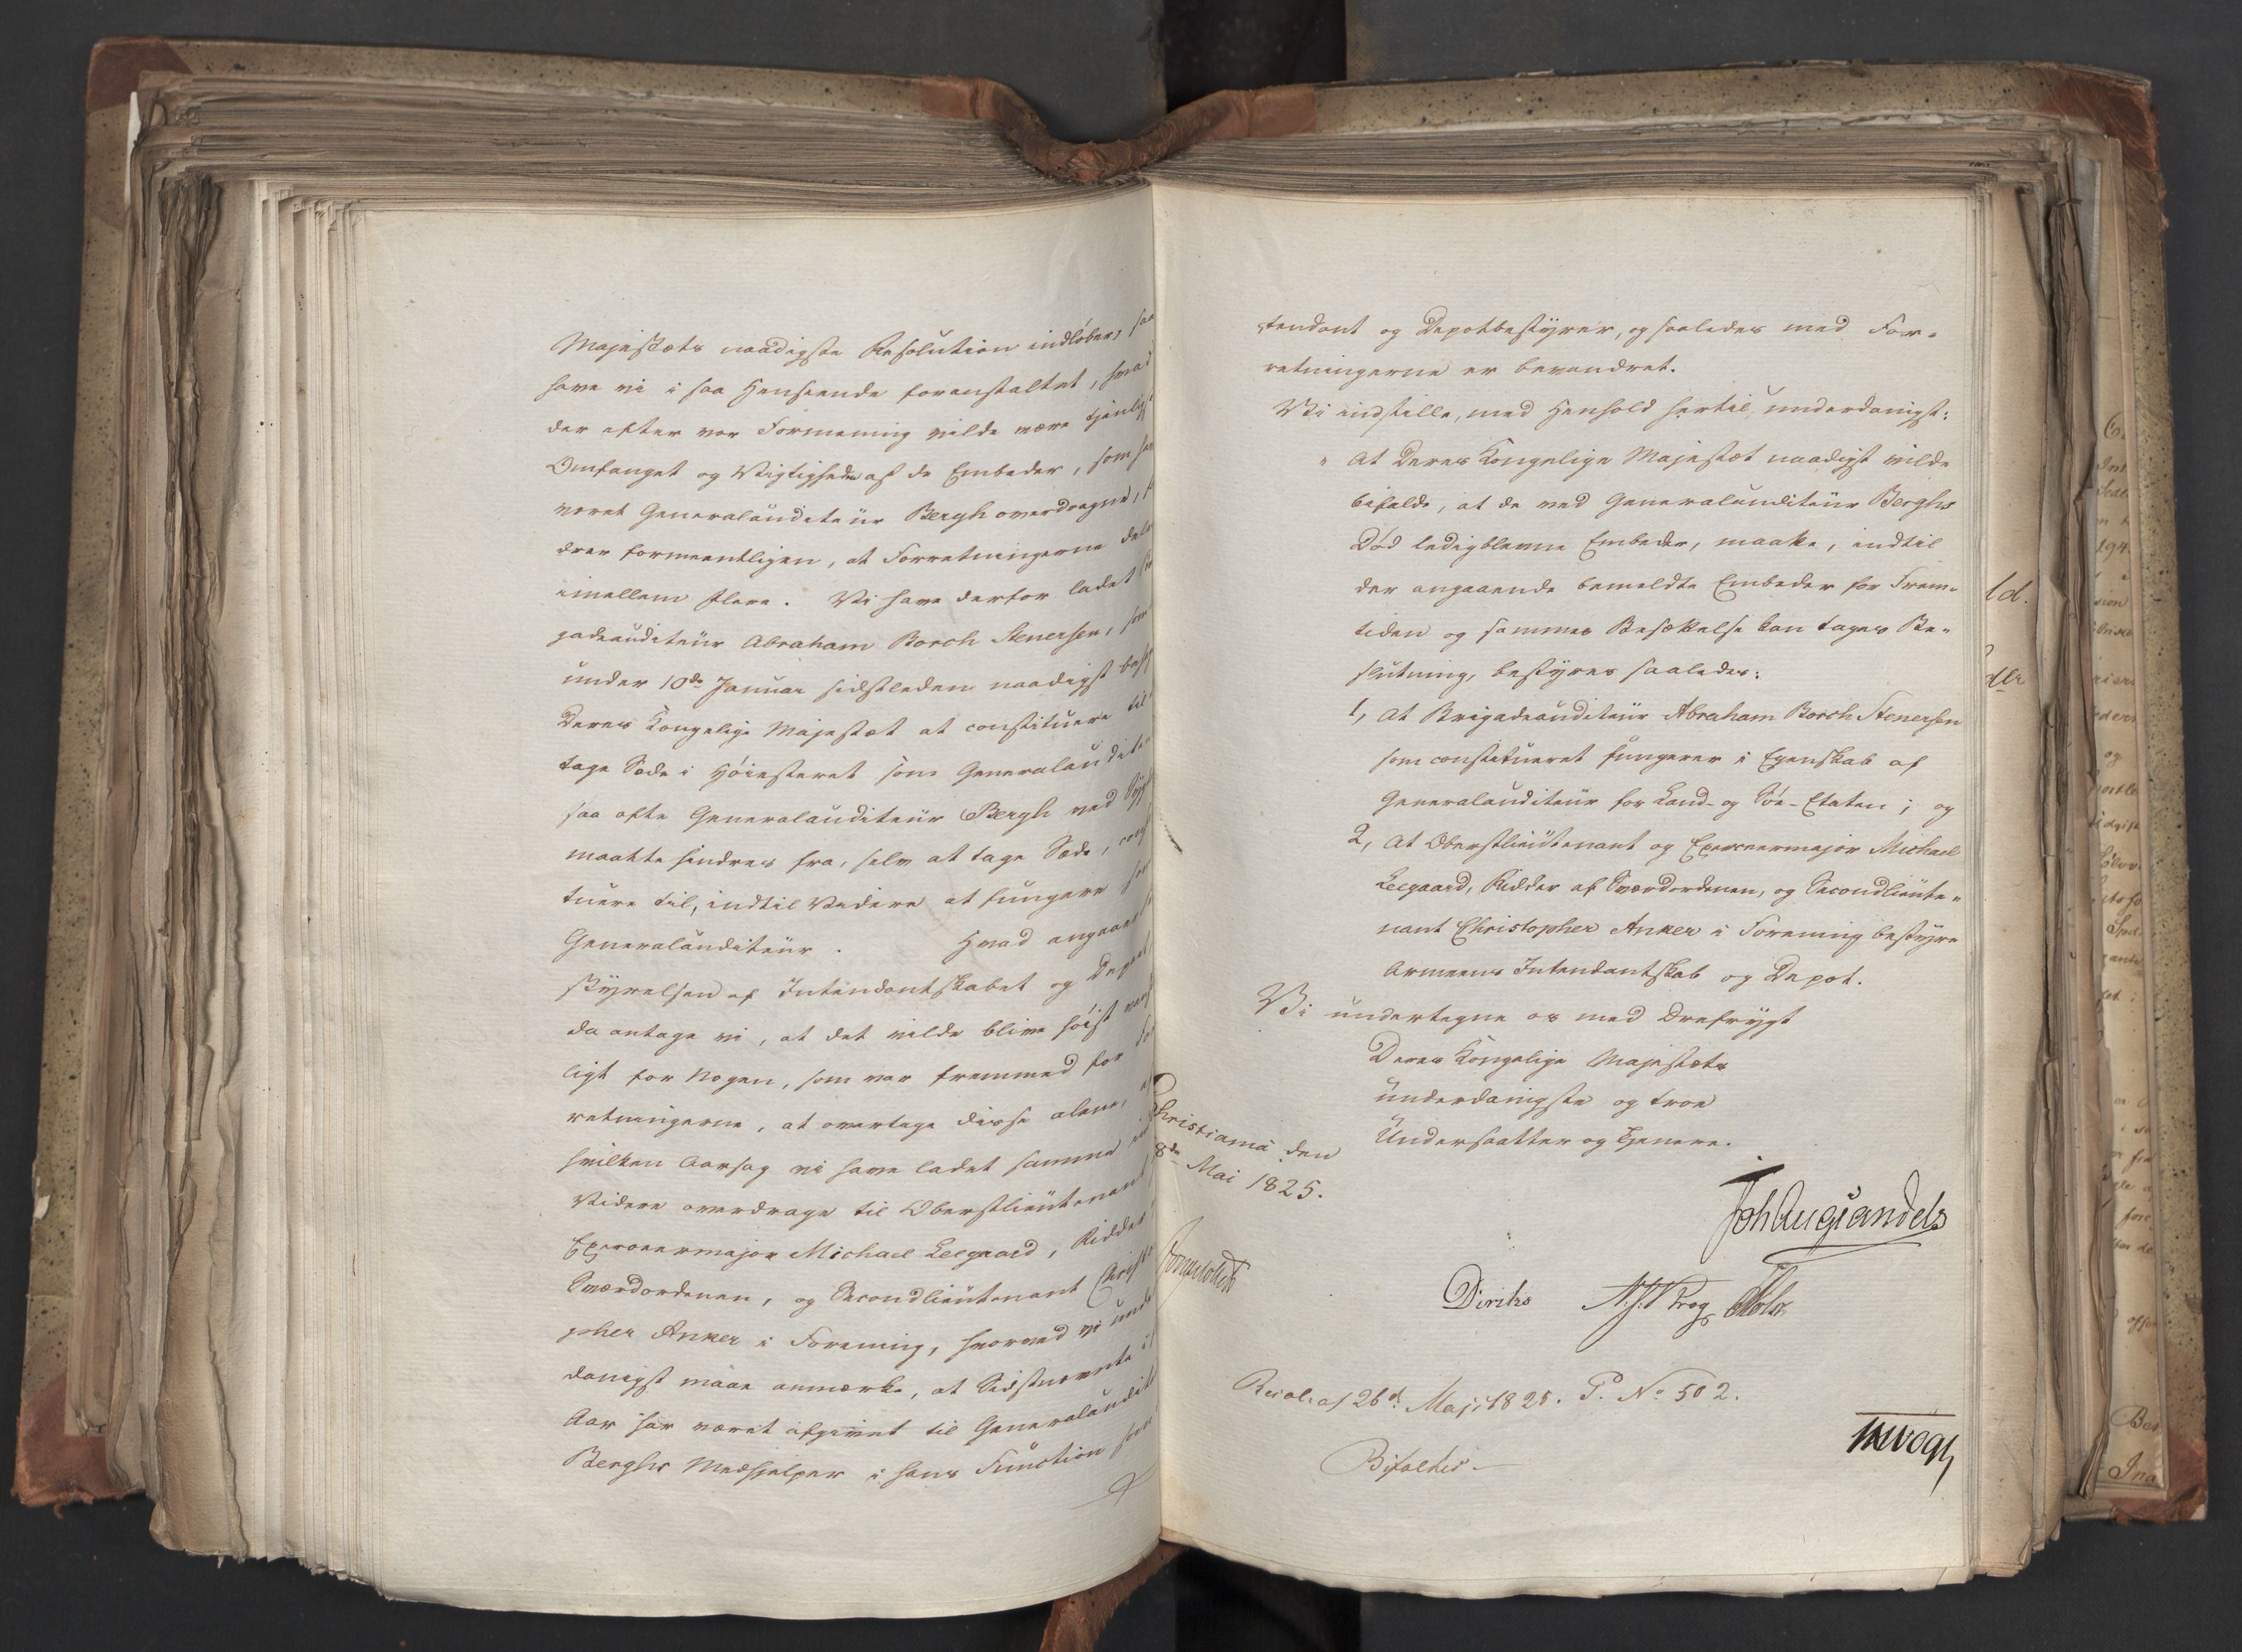 Majestæts naadigste Resolution indløber, saa
have vi i saa Henseende foranstaltet, hvad
der efter vor Formening vilde være tjenligst
Omfanget og Vigtigheden af de Embeder, som
været Generalauditeur Bergh overdragne,
drer formeentligen, at Forretningerne dele
imellem flere. Vi have derfor ladet
gadeauditeur Abraham Borch Stenersen, som
under 10de Januar sidstleden naadigst
Deres Kongelige Majestæt at constituere til
tage Sæde i Høiesteret som Generalauditeu
saa ofte Generalauditeur Bergh ved Syg
maatte hindres fra, selv at tage Sæde,
tuere til, indtil Videre at fungere som
Generalauditeur. Hvad angaaer
styrelsen af Intendantskabet og Depot
da antage vi, at det vilde blive høist
ligt for Nogen, som var fremmed for
retningerne, at overtage disse alene,
hvilken Aarsag vi have ladet samme
Videre overdrage til Oberstlieutenant
Exerceermajor Michael Leegaard, Ridder
Sværdordenen, og Secondlieutenant Christ
pher Anker i Forening, hvorved vi unde
danigst maae anmærke, at Sidstnævnte i
Aar har været afgivet til Generalaudite
Berghs Medhjelper i hans Function som
tendant og Depotbestyrer, og saaledes med For-
retningerne er bevandret.
Vi indstille, med Henhold hertil, underdanigst:
" At Deres Kongelige Majestæt naadigst vilde
bifalde, at de ved Generalauditeur Berghs
Død ledigblevne Embeder, maatte, indtil
der angaaende bemeldte Embeder for Frem-
tiden og sammes Besættelse kan tages Be-
slutning, bestyres saaledes:
1, At Brigadeauditeur Abraham Borch Stenersen
som constitueret fungerer i Egenskab af
Generalauditeur for Land- og Søe-Etaten; og
2, At Oberstlieutenant og Exerceermajor Michael
Leegaard, Ridder af Sværdordenen, og Secondlieute-
nant Christopher Anker i Forening bestyre
Armeens Intendantskab og Depot.
Vi undertegne os med Ærefrygt
Deres Kongelige Majestæts
underdanigste og troe
Undersaatter og Tjenere.
Christiania den
8de Mai 1825.
Joh Aug Sandels
Diriks
Resol. af 26d Maji 1825. P. No 502.
Bifaldes.